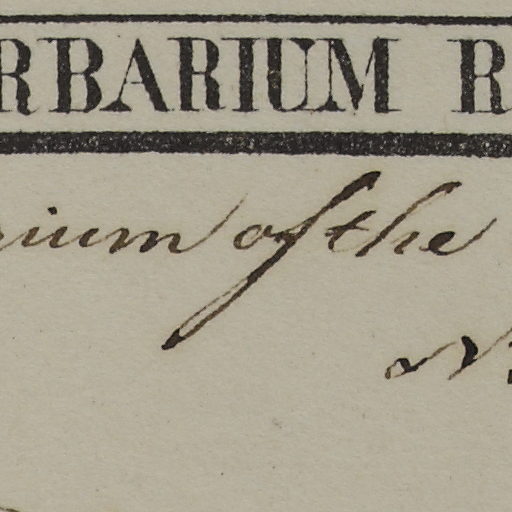 RBARIUM R
rium of the
N